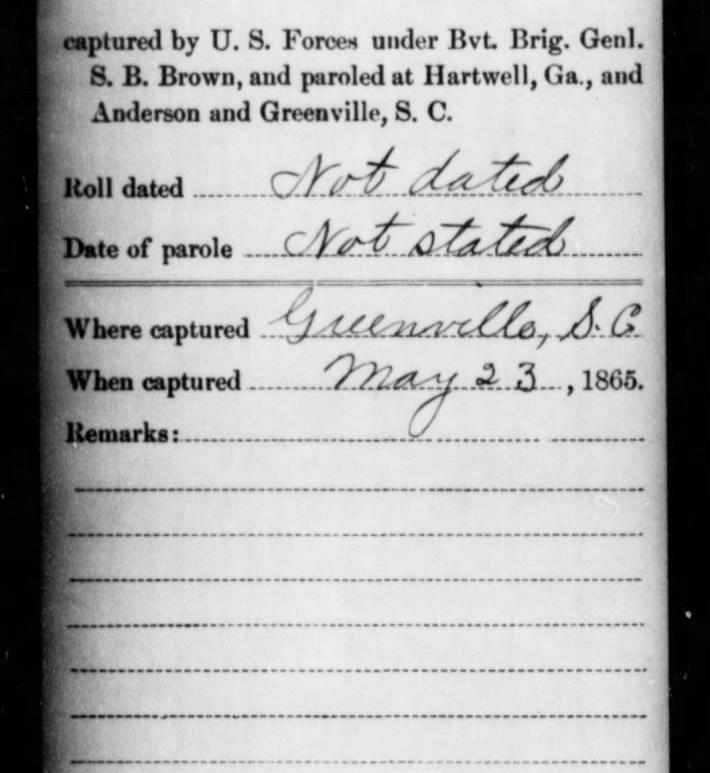 captured by U. S. Forces under Bvt. Brig. Genl.
S. B. Brown, and paroled at Hartwell, Ga., and
Anderson and Greenville, S. C.
Roll dated Not dated
Date of parole Not stated
Where captured Greenville, S. C.
When captured May 23, 1865.
Remarks: